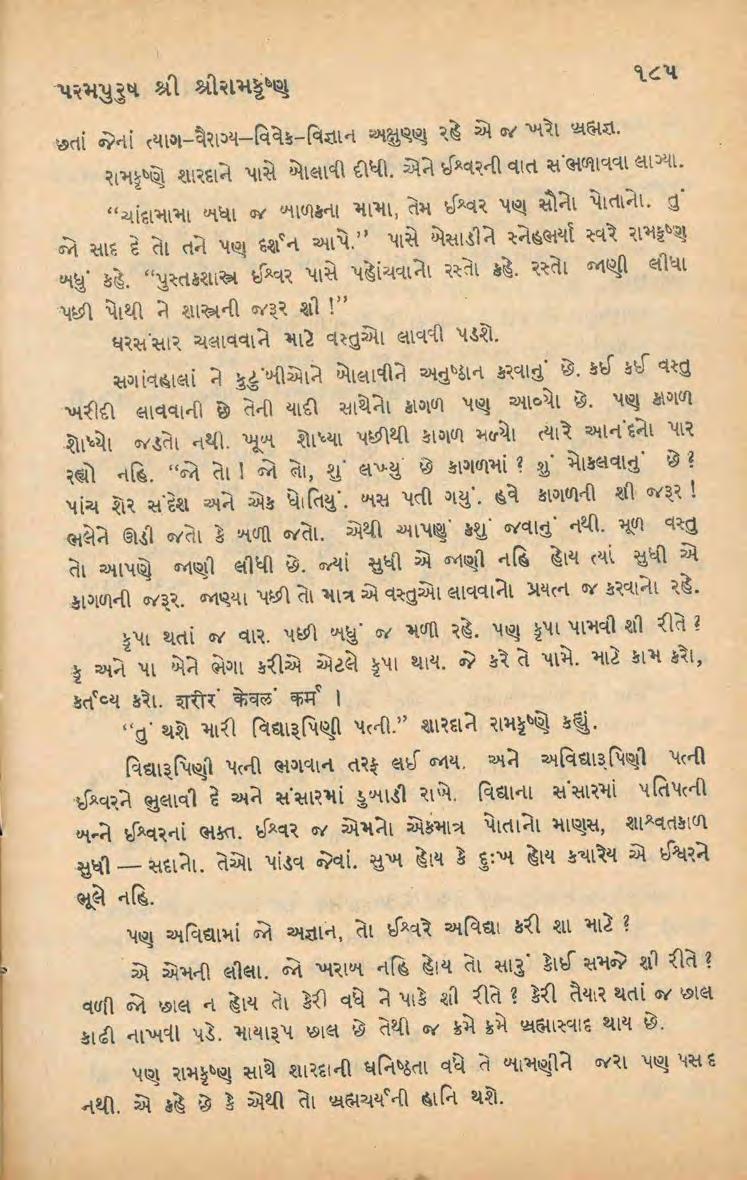 પરમપુરુષ શ્રી શ્રીરામકૃષ્ણ
૧૮૫
છતાં જેનાં ત્યાગ–વૈરાગ્ય–વિવેક–વિજ્ઞાન અક્ષુણ્ણ રહે એ જ ખરો બ્રહ્મજ્ઞ.
રામકૃષ્ણે શારદાને પાસે બોલાવી દીધી. એને ઈશ્વરની વાત સંભળાવવા લાગ્યા.
“ચાંદામામા બધા જ બાળકના મામા, તેમ ઈશ્વર પણ સૌનો પોતાનો. તું
જો સાદ દે તો તને પણ દર્શન આપે.” પાસે બેસાડીને સ્નેહભર્યા સ્વરે રામકૃષ્ણ
બધું કહે. “પુસ્તકશાસ્ત્ર ઈશ્વર પાસે પહોંચવાનો રસ્તો કહે. રસ્તો જાણી લીધા
પછી પોથી ને શાસ્ત્રની જરૂર શી !”
ઘરસંસાર ચલાવવાને માટે વસ્તુઓ લાવવી પડશે.
સગાંવહાલાં ને કુટુંબીઓને બોલાવીને અનુષ્ઠાન કરવાનું છે. કઈ કઈ વસ્તુ
ખરીદી લાવવાની છે તેની યાદી સાથેનો કાગળ પણ આવ્યો છે. પણ કાગળ
શોધ્યો જડતો નથી. ખૂબ શોધ્યા પછીથી કાગળ મળ્યો ત્યારે આનંદનો પાર
રહ્યો નહિ. “જો તો ! જો તો, શું લખ્યું છે કાગળમાં ? શું મોકલવાનું છે ?
પાંચ શેર સંદેશ અને એક ધોતિયું. બસ પતી ગયું. હવે કાગળની શી જરૂર !
ભલેને ઊડી જતો કે બળી જતો. એથી આપણું કશું જવાનું નથી. મૂળ વસ્તુ
તો આપણે જાણી લીધી છે. જ્યાં સુધી એ જાણી નહિ હોય ત્યાં સુધી એ
કાગળની જરૂર. જાણ્યા પછી તો માત્ર એ વસ્તુઓ લાવવાનો પ્રયત્ન જ કરવાનો રહે.
કૃપા થતાં જ વાર. પછી બધું જ મળી રહે. પણ કૃપા પામવી શી રીતે ?
કૃ અને પા બેને ભેગા કરીએ એટલે કૃપા થાય. જે કરે તે પામે. માટે કામ કરો,
કર્તવ્ય કરો. शरीरं केवलं कर्म ।
“તું થશે મારી વિદ્યારૂપિણી પત્ની.” શારદાને રામકૃષ્ણે કહ્યું.
વિદ્યારૂપિણી પત્ની ભગવાન તરફ લઈ જાય. અને અવિદ્યારૂપિણી પત્ની
ઈશ્વરને ભુલાવી દે અને સંસારમાં ડુબાડી રાખે. વિદ્યાના સંસારમાં પતિપત્ની
બન્ને ઈશ્વરનાં ભક્ત. ઈશ્વર જ એમનો એકમાત્ર પોતાનો માણસ, શાશ્વતકાળ
સુધી — સદાનો. તેઓ પાંડવ જેવાં. સુખ હોય કે દુઃખ હોય ક્યારેય એ ઈશ્વરને
ભૂલે નહિ.
પણ અવિદ્યામાં જો અજ્ઞાન, તો ઈશ્વરે અવિદ્યા કરી શા માટે ?
એ એમની લીલા. જો ખરાબ નહિ હોય તો સારું કોઈ સમજે શી રીતે ?
વળી જો છાલ ન હોય તો કેરી વધે ને પાકે શી રીતે ? કેરી તૈયાર થતાં જ છાલ
કાઢી નાખવી પડે. માયારૂપ છાલ છે તેથી જ ક્રમે ક્રમે બ્રહ્માસ્વાદ થાય છે.
પણ રામકૃષ્ણ સાથે શારદાની ઘનિષ્ઠતા વધે તે બામણીને જરા પણ પસંદ
નથી. એ કહે છે કે એથી તો બ્રહ્મચર્યની હાનિ થશે.